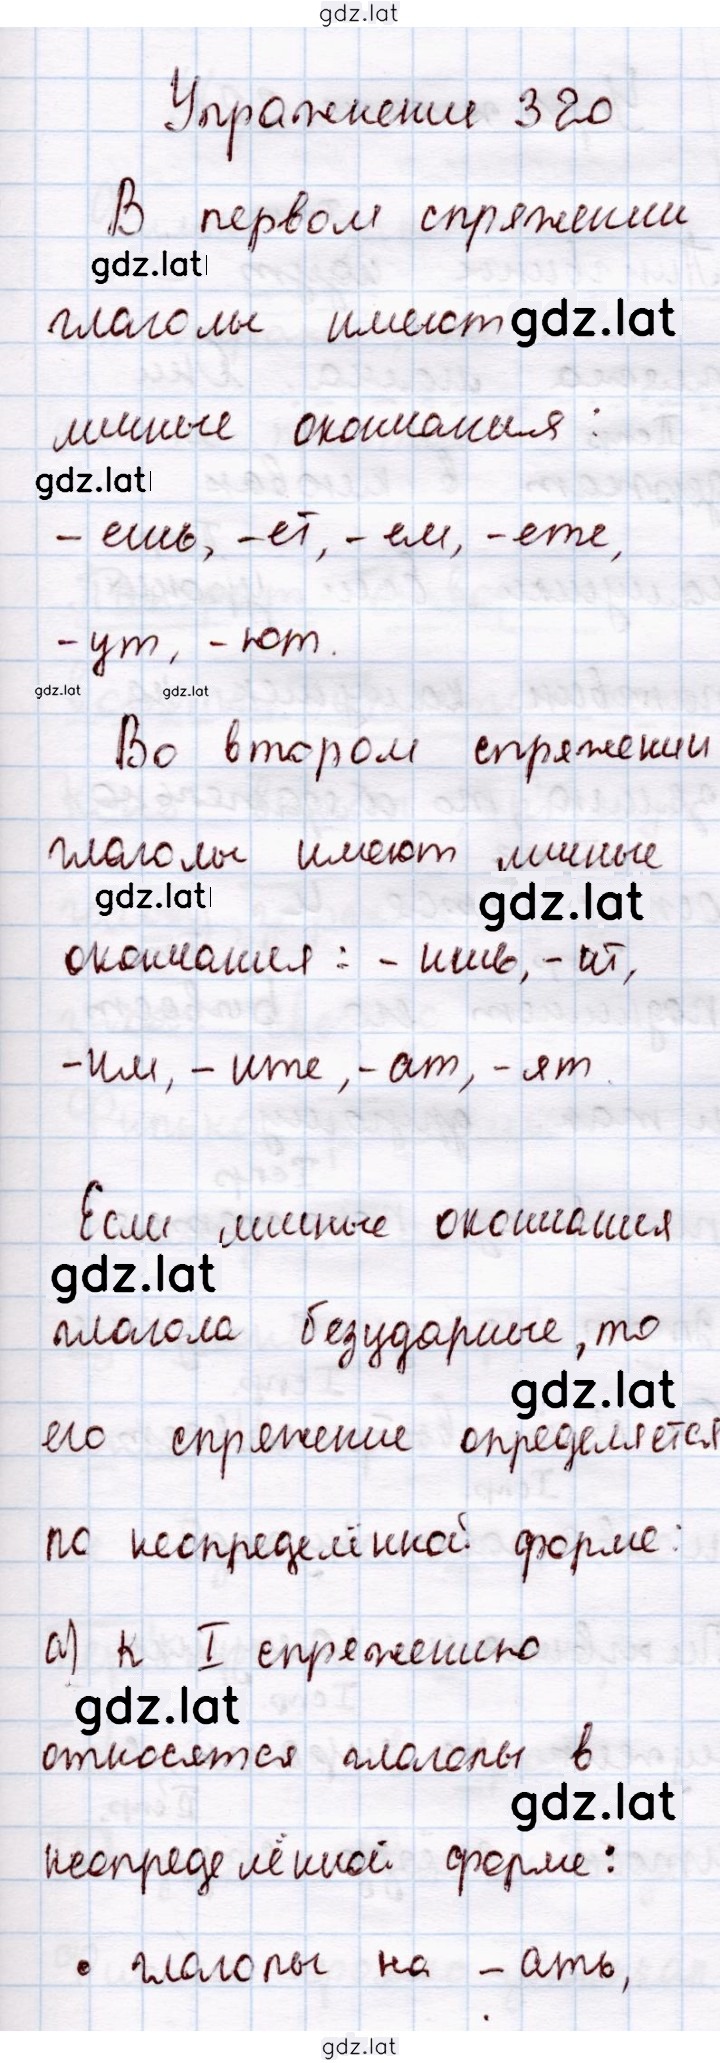 gdz.lat
Упражнение 320
В первом спряжении
gdz.lat
глаголы имеют gdz.lat
личные окончания:
gdz.lat
-ешь, -ет, -ем, -ете,
-ут, -ют.
gdz.lat gdz.lat
Во втором спряжении
глаголы имеют личные
gdz.lat gdz.lat
окончания: -ишь, -ит,
-им, -ите, -ат, -ят.
Если личные окончания
gdz.lat
глагола безударные, то
gdz.lat
его спряжение определяется
по неопределённой форме:
а) к I спряжению
gdz.lat
относятся глаголы в
gdz.lat
неопределённой форме:
• глаголы на -ать,
gdz.lat